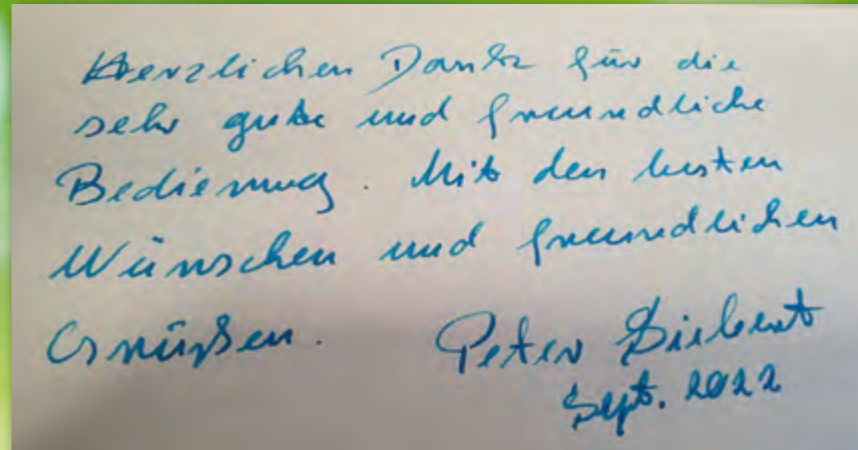 Herzlichen Dank für die
sehr gute und freundliche
Bedienung. Mit den besten
Wünschen und freundlichen
Grüßen. Peter Siebert
Sept. 2022